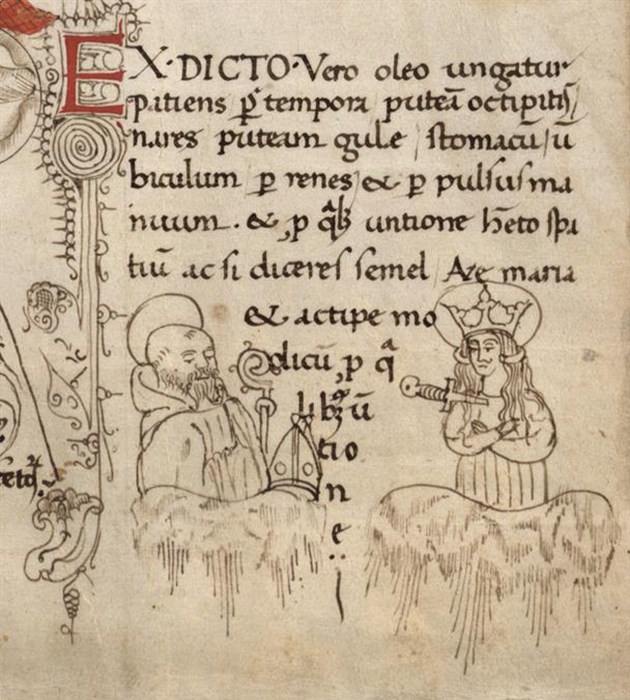 EX·DICTO·Vero oleo ungatur
patiens p̲ tempora puteā octipitis/
nares puteam gule / stomacū / ū
biculum p̲ renes / & p̲ pulsus ma
nuum. & p̲ untione h̄eto spa
tiū ac si diceres semel Aue maria
& actipe mo
dicū p̲ q̄
ū
tio
n
e